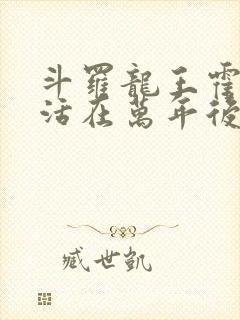 斗羅龍王霍
活在萬年後
臧世凱